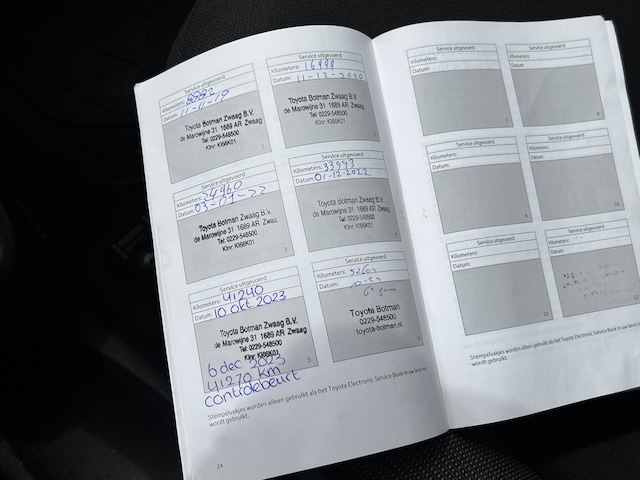 Service uitgevoerd
Kilometers:
Datum: 11-11-19
Toyota Botman Zwaag B.V.
de Marowijne 31 1689 AR Zwaag
Tel: 0229-548500
Klnr: KI66K01
1
Service uitgevoerd
Kilometers: 16999
Datum: 11-12-2020
Toyota Botman Zwaag B.V.
de Marowijne 31 1689 AR Zwaag
Tel: 0229-548500
Klnr: KI66K01
2
Service uitgevoerd
Kilometers: 24960
Datum: 03-01-22
Toyota Botman Zwaag B.V.
de Marowijne 31 1689 AR Zwaag
Tel: 0229-548500
Klnr: KI66K01
3
Service uitgevoerd
Kilometers: 33993
Datum: 01-12-2022
Toyota Botman Zwaag B.V.
de Marowijne 31 1689 AR Zwaag
Tel: 0229-548500
Klnr: KI66K01
4
Service uitgevoerd
Kilometers: 41240
Datum: 10 okt 2023
Toyota Botman Zwaag B.V.
de Marowijne 31 1689 AR Zwaag
Tel: 0229-548500
Klnr: KI66K01
5
6 dec 2023
41270 km
controlebeurt
Service uitgevoerd
Kilometers:
Datum:
Toyota Botman
0229-548500
toyota-botman.nl
6
Stempelvakjes worden alleen gebruikt als het Toyota Electronic Service Book in uw land
wordt gebruikt.
24
Service uitgevoerd
Kilometers:
Datum:
7
Service uitgevoerd
Kilometers:
Datum:
8
Service uitgevoerd
Kilometers:
Datum:
9
Service uitgevoerd
Kilometers:
Datum:
10
Service uitgevoerd
Kilometers:
Datum:
11
Service uitgevoerd
Kilometers:
Datum:
12
Stempelvakjes worden alleen gebruikt als het Toyota Electronic Service Book in uw land
wordt gebruikt.